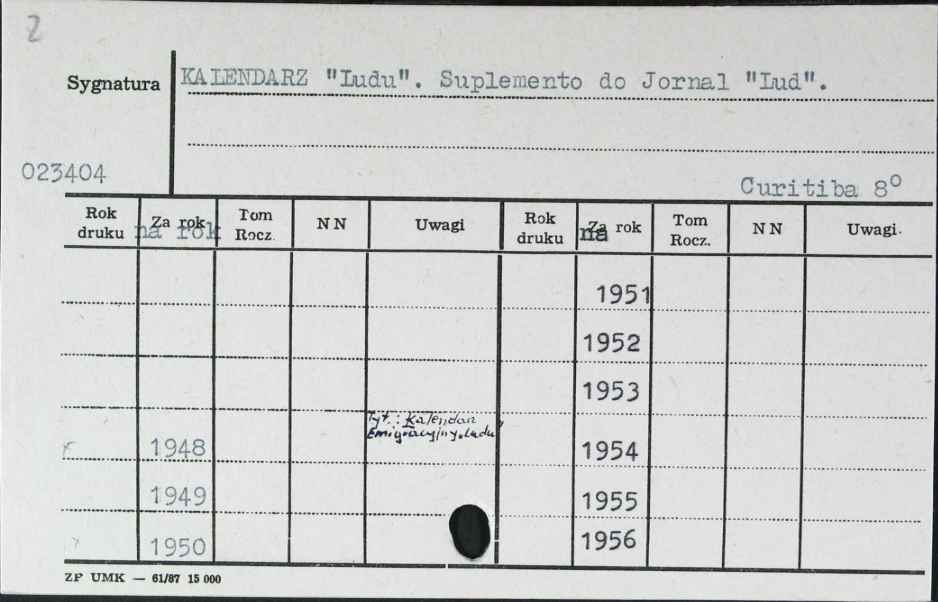 2
Sygnatura KALENDARZ "Ludu". Suplemento do Jornal "Lud".
023404
Curitiba 8°
Rok druku Za rok na rok Tom Rocz. NN Uwagi Rok druku Za rok na Tom Rocz. NN Uwagi
1951
1952
1953
Tyt.: Kalendarz
Emigracyjny "Ludu"
1948 1954
1949 1955
1950 1956
ZP UMK — 61/87 15 000